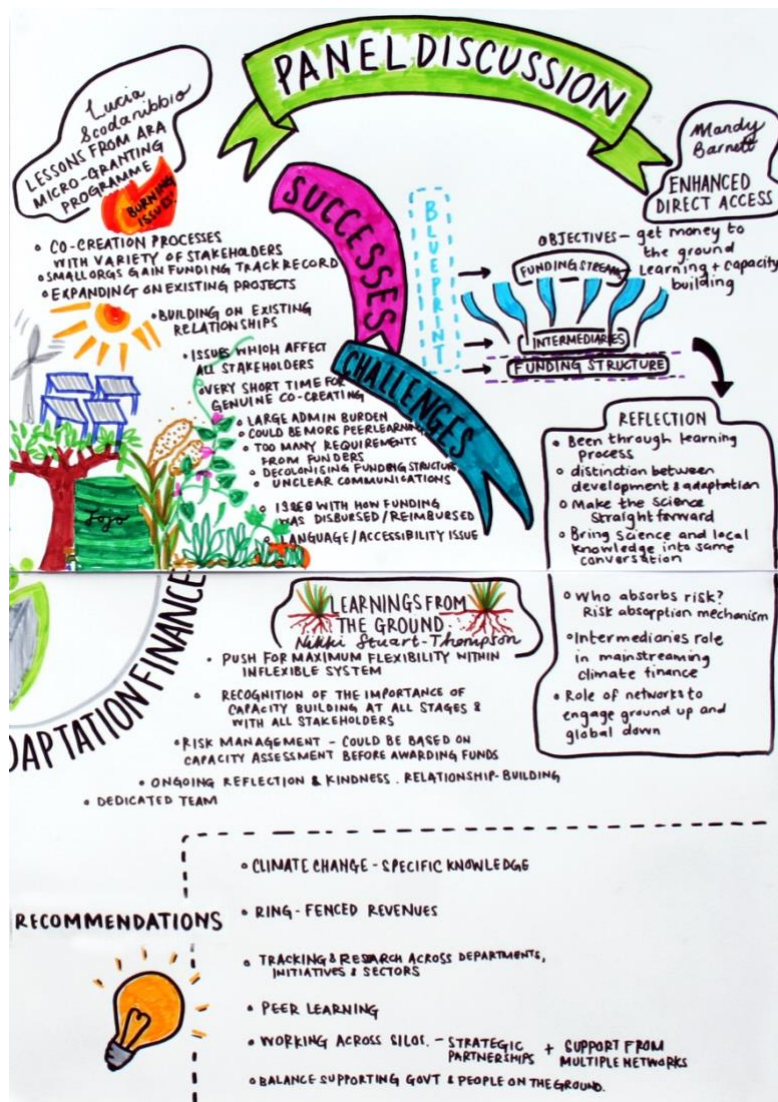 PANEL DISCUSSION
Lucia
Scodanibbio
LESSONS FROM ARA
MICRO-GRANTING
PROGRAMME
BURNING
ISSUES!
SUCCESSES
• CO-CREATION PROCESSES
WITH VARIETY OF STAKEHOLDERS
• SMALL ORGS GAIN FUNDING TRACK RECORD
• EXPANDING ON EXISTING PROJECTS
• BUILDING ON EXISTING
RELATIONSHIPS
• ISSUES WHICH AFFECT
ALL STAKEHOLDERS
CHALLENGES
• VERY SHORT TIME FOR
GENUINE CO-CREATING
• LARGE ADMIN BURDEN
• COULD BE MORE PEER LEARNING
• TOO MANY REQUIREMENTS
FROM FUNDERS
• DECOLONISING FUNDING STRUCTURE
• UNCLEAR COMMUNICATIONS
• WITH HOW FUNDING
WAS DISBURSED/REIMBURSED
• LANGUAGE/ACCESSIBILITY ISSUE
JoJo
Mandy
Barnett
ENHANCED
DIRECT ACCESS
BLUEPRINT
OBJECTIVES – get money to
the ground
Learning + capacity
building
FUNDING STREAM
INTERMEDIARIES
FUNDING STRUCTURE
REFLECTION
• Been through learning
process
• distinction between
development & adaptation
• Make the science
Straight forward
• Bring Science and local
knowledge into same
conversation
• Who absorbs risk?
Risk absorption mechanism
• Intermediaries role
in mainstreaming
climate finance
• Role of networks to
engage ground up and
global down
DAPTATION FINANCE
LEARNINGS FROM
THE GROUND
Nikki Stuart-Thompson
• PUSH FOR MAXIMUM FLEXIBILITY WITHIN
INFLEXIBLE SYSTEM
• RECOGNITION OF THE IMPORTANCE OF
CAPACITY BUILDING AT ALL STAGES &
WITH ALL STAKEHOLDERS
• RISK MANAGEMENT – COULD BE BASED ON
CAPACITY ASSESSMENT BEFORE AWARDING FUNDS
• ONGOING REFLECTION & KINDNESS. RELATIONSHIP-BUILDING
• DEDICATED TEAM
RECOMMENDATIONS
• CLIMATE CHANGE - SPECIFIC KNOWLEDGE
• RING-FENCED REVENUES
• TRACKING & RESEARCH ACROSS DEPARTMENTS,
INITIATIVES & SECTORS
• PEER LEARNING
• WORKING ACROSS SILOS. – STRATEGIC PARTNERSHIPS + SUPPORT FROM MULTIPLE NETWORKS
• BALANCE SUPPORTING GOVT & PEOPLE ON THE GROUND.